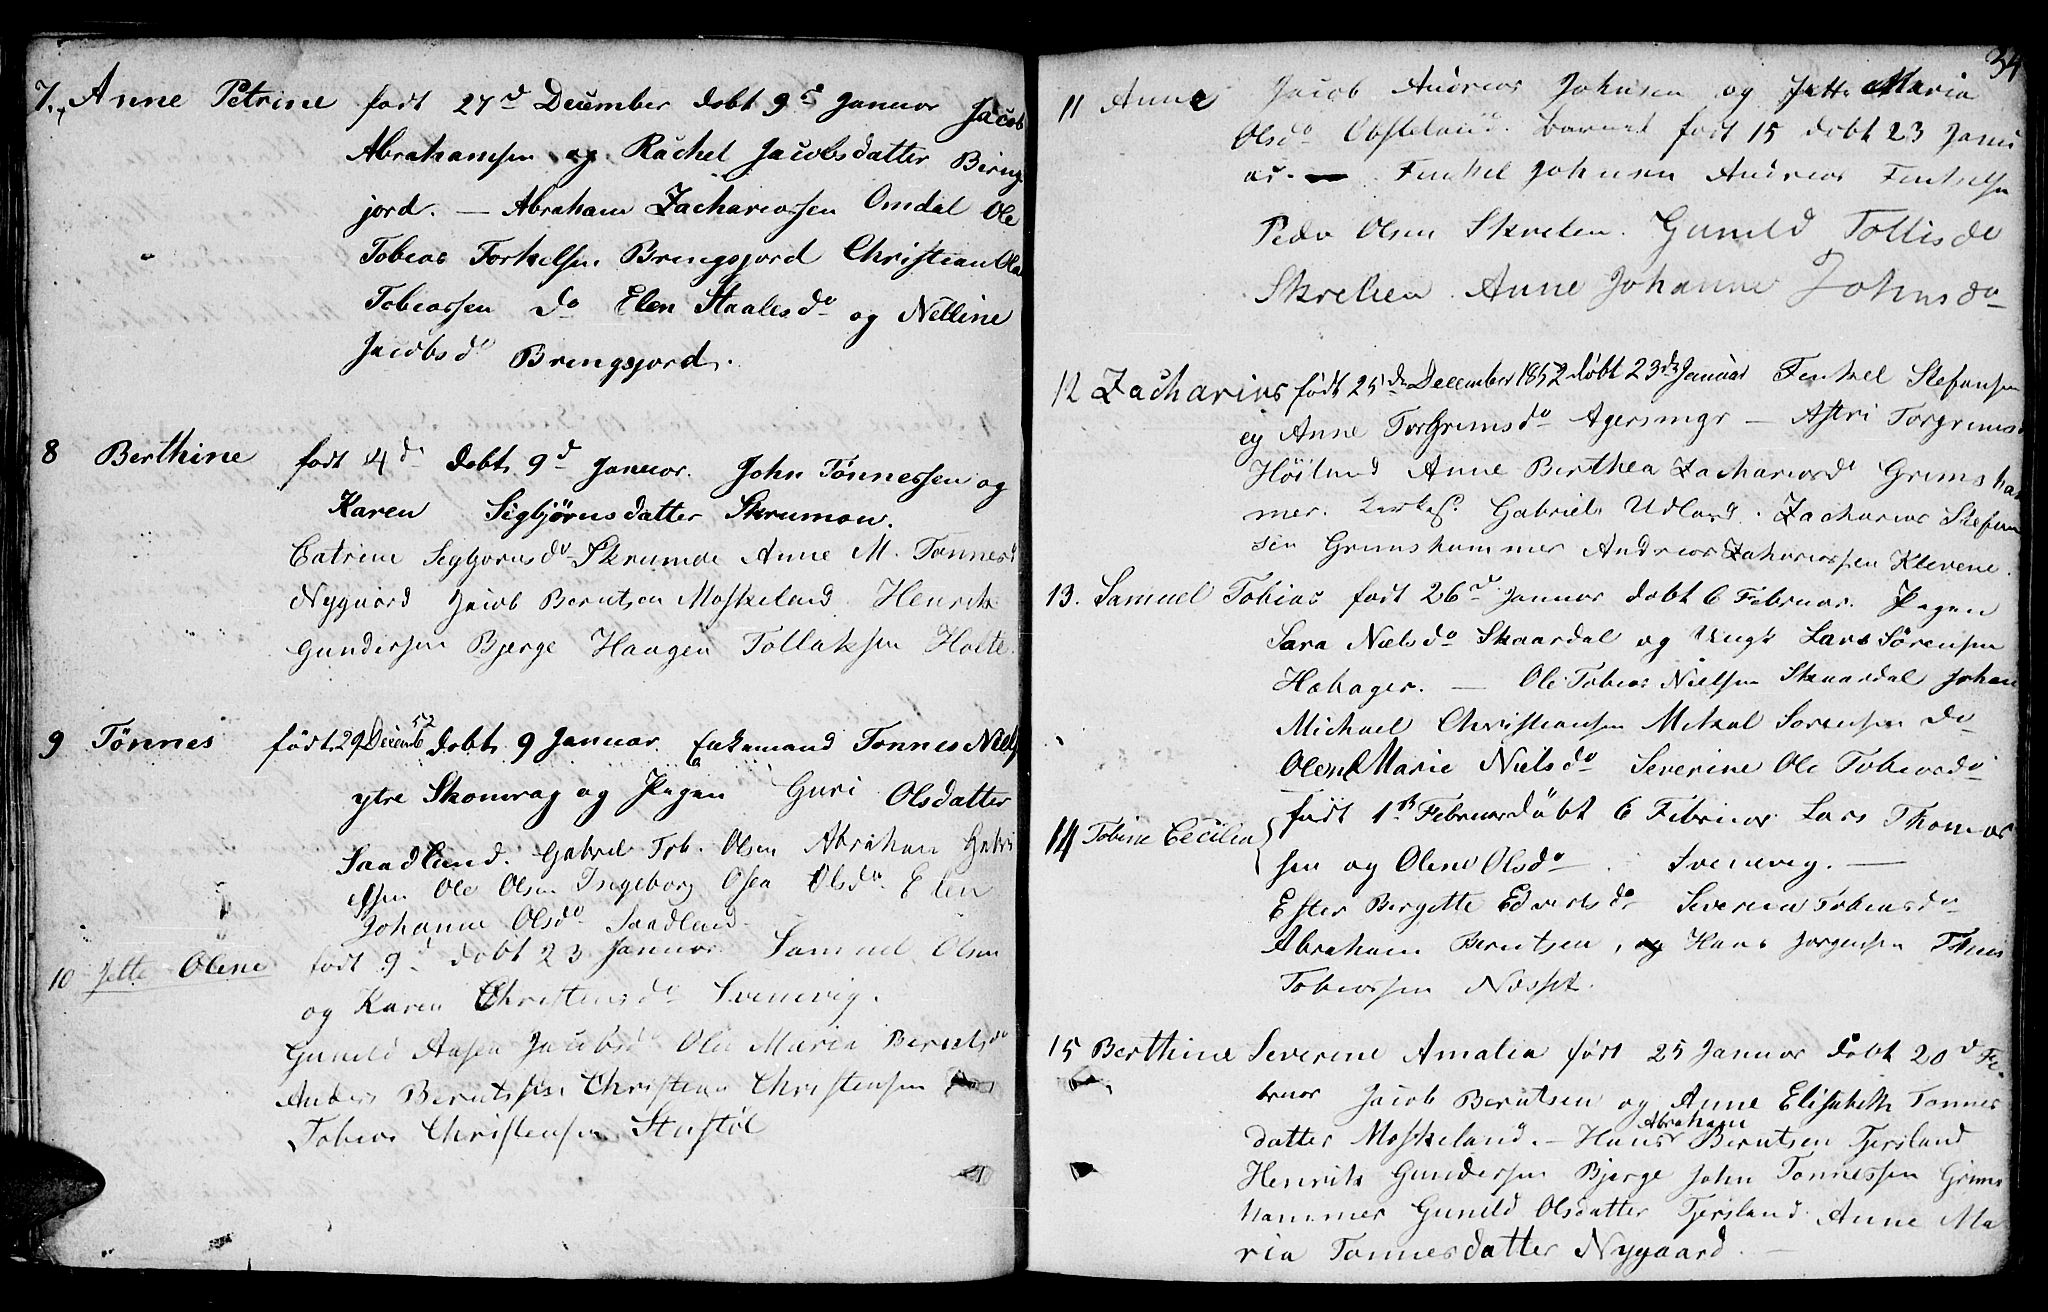 7. Anne Petrine født 27d December døbt 9d Januar Jacob
Abrahamsen og Rachel Jacobsdatter Bring
jord. — Abraham Zachariassen Omdal Ole
Tobias Torkelsen Bringsjord Christian Olai
Tobiassen do Elen Staalesdo og Nelline
Jacobsdo Bringsjord.
8 Berthine født 4d døbt 9d Januar. John Tönnessen og
Karen Sigbjörnsdatter Skrumon.
Catrine Sigbjornsdo Skrumoe Anne M. Tønnesd
Nygaard Jacob Berntsen Moskeland Henrik
Gundersen Bjerge Haagen Tollaksen Holte.
9 Tönnes født 29 Decemb 52 døbt 9 Januar. Enkemand Tonnes Niels
ytre Skomrag og Pigen Guri Olsdatter
Saadland. Gabriel Tob. Olsen Abraham Gabri
elsen Ole Olsen Ingeborg Osea Olsdo Elen
Johanne Olsdo Saadland
10 Jette Olene født 9d døbt 23 Januar Samuel Olsen
og Karen Christensdo Svenevig.
Gunild Aasea Jacobsdo Ole Maria Berntsdo
Anders Berntssen Christian Christensen
Tobias Christensen Stustöl
34
11 Anne Jacob Andreas Johnsen og Jette Maria
Olsdo Obsteland. Barnet født 15 døbt 23 Janu
ar. — Fenkel Johnsen Andreas Fenkelsen
Peder Olsen Skreien. Gunild Tollisdo
Skreien. Anne Johanne Johnsdo
12 Zacharias født 25de December 1852 döbt 23de Januar Fenkel Stefansen
og Anne Torgrimsdo Agersmyr — Astri Torgrimsd
Höiland Anne Berthea Zachariasdo Grimsham
mer. Kirkes. Gabriel Udland. Zacharias Stefan
sen Grimshammer Andreas Zakariassen Klevene.
13. Samuel Tobias født 26d Januar døbt 6 Februar. Pigen
Sara Nielsdo Skaardal og Ungk Lars Sörensen
Habager. — Ole Tobias Nielsen Skaardal Johan
Michael Christiansen Mikal Sorensen do
Olene Marie Nielsdo Severine Ole Tobiasdo
14 Tobine Cecilia født 1st Februar döbt 6 Februar Lars Thomas
sen og Olene Olsdo Svenevig. —
Ester Bergitte Edvertsdo Severine Tobiasdo
Abraham Berntsen, og Hans Jorgensen Tönnes
Tobiassen Næsset.
15 Berthine Severine Amalia født 25 Januar døbt 20d Fe-
bruar Jacob Berntsen og Anne Elisabeth Tønnes
datter Moskeland. — Hans Abraham Berntsen Tjersland
Henrik Gundersen Bjerge John Tonnessen Grims
hammer Gunild Olsdatter Tjersland Anne Ma
ria Tonnesdatter Nygaard. —